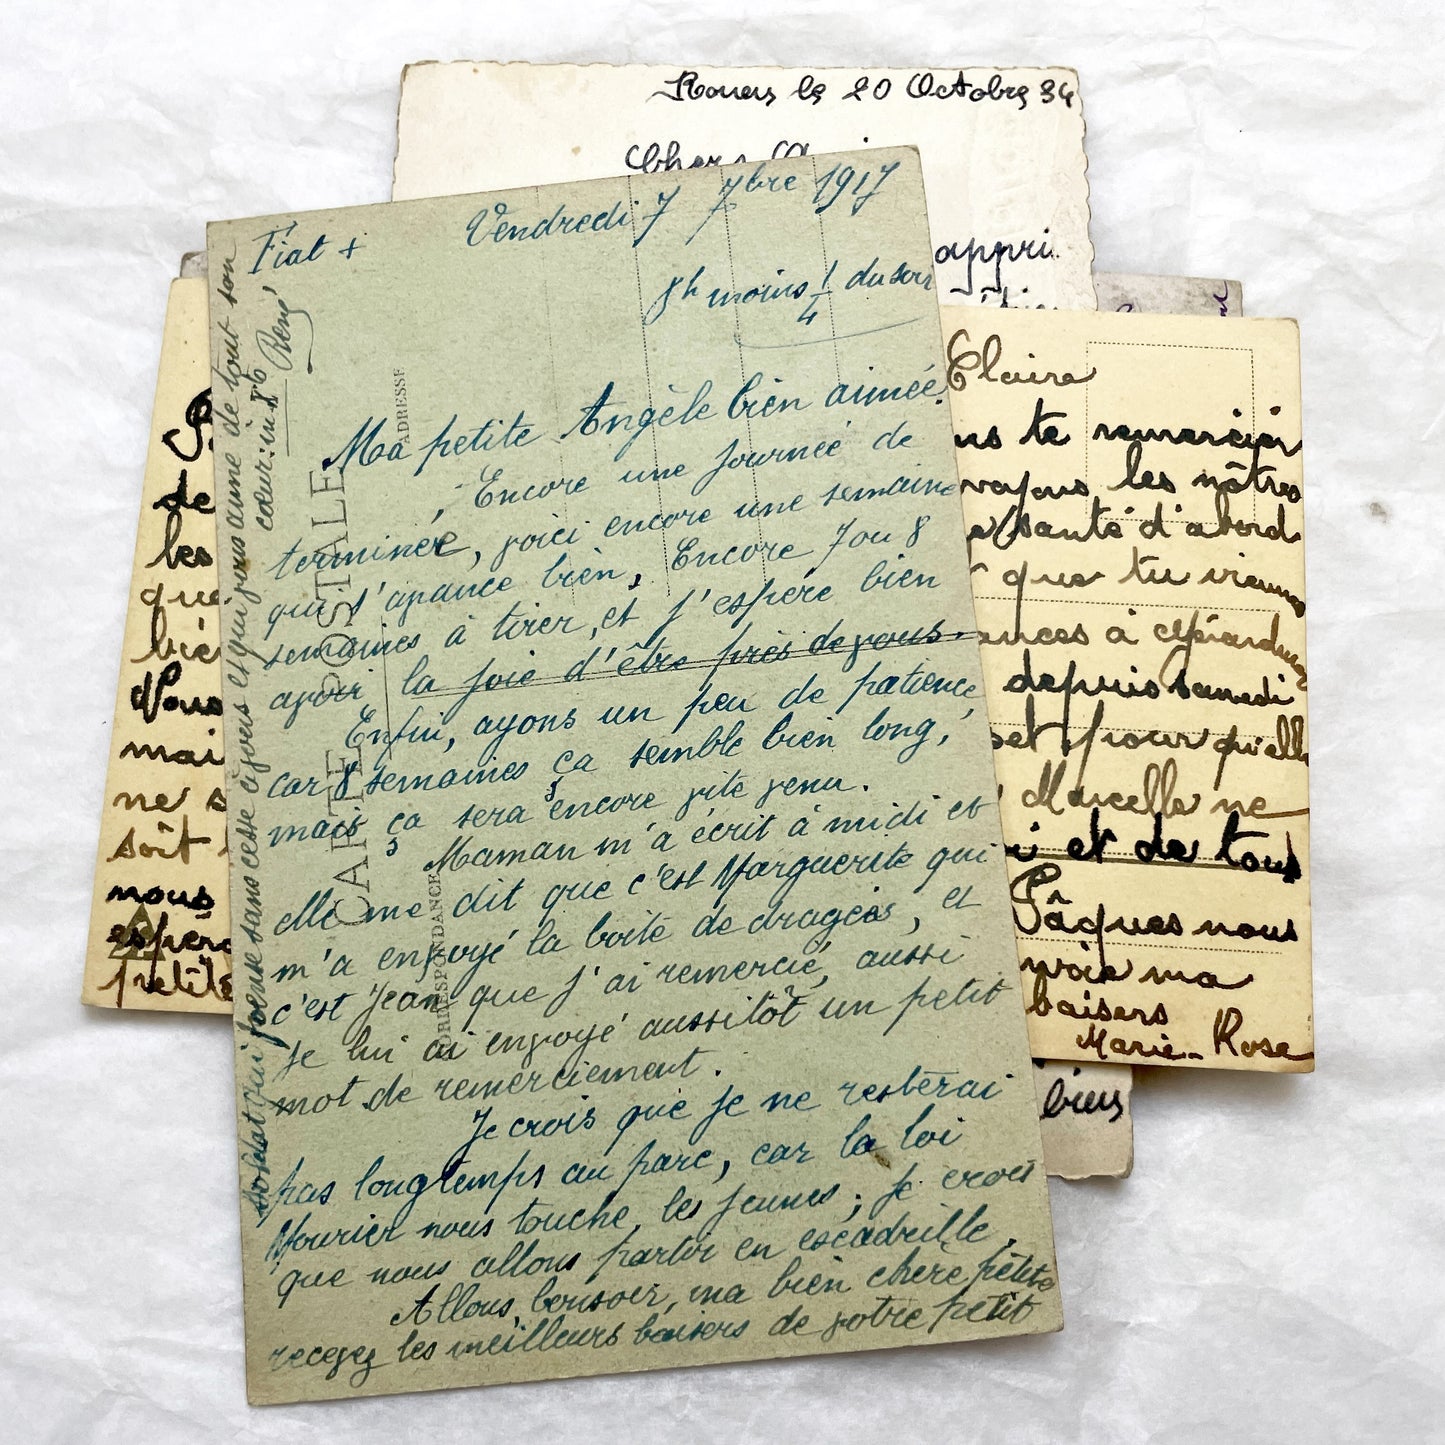 Rouen le 20 Octobre 34
Chers
appri
Fiat + Vendredi 7 7bre 1917
8h moins 1/4 du soir
Ma petite Angèle bien aimée.
Encore une journée de
terminée, voici encore une semaine
qui s'avance bien, Encore 7 ou 8
semaines à tirer, et j'espère bien
avoir la joie d'être près de vous.
Enfin, ayons un peu de patience,
car 8 semaines ça semble bien long,
mais ça sera encore vite venu.
Maman m'a écrit à midi et
elle me dit que c'est Marguerite qui
m'a envoyé la boîte de dragées, et
c'est Jean que j'ai remercié, aussi
je lui ai envoyé aussitôt un petit
mot de remerciement.
Je crois que je ne resterai
pas longtemps au parc, car la loi
Mourier nous touche, les jeunes; je crois
que nous allons partir en escadrille,
Allons, bonsoir, ma bien chère petite
recevez les meilleurs baisers de votre petit
soldat qui pense sans cesse à vous et qui vous aime de tout son
cœur.
René
CARTE POSTALE
CORRESPONDANCE
ADRESSE
de
les
que
bie
Nous
mai
ne s
soit
nous
espér
petite
Claire
ns te remercier
voyons les nôtres
santé d'abord
que tu viennes
ances à Gérardmer
depuis samedi
et pour qu'elle
Marcelle ne
i et de tous
Pâques nous
voie ma
baisers
Marie-Rose
biens